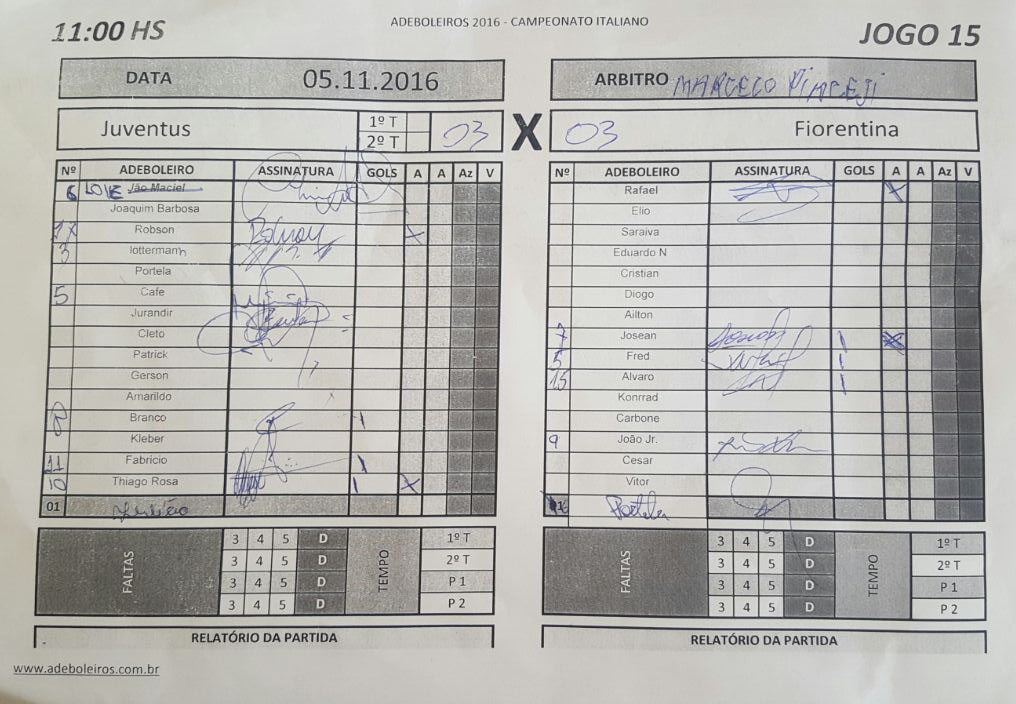 ADEBOLEIROS 2016 - CAMPEONATO ITALIANO
11:00 HS
JOGO 15
DATA 05.11.2016
ARBITRO MARCECO
Juventus 1º T 2º T 03 X 03 Fiorentina
Nº ADEBOLEIRO ASSINATURA GOLS A A Az V
6 LOVE Jão Maciel
Joaquim Barbosa
Robson X
3 lottermann
Portela
5 Cafe
Jurandir
Cleto
Patrick
Gerson
Amarildo
Branco 1
Kleber
11 Fabricio 1
10 Thiago Rosa 1 X
01
Nº ADEBOLEIRO ASSINATURA GOLS A A Az V
Rafael X
Elio
Saraiva
Eduardo N
Cristian
Diogo
Ailton
7 Josean 1 X
5 Fred 1
15 Alvaro 1
Konrrad
Carbone
9 João Jr.
Cesar
Vitor
Portela
FALTAS
3 4 5 D
3 4 5 D
3 4 5 D
3 4 5 D
TEMPO
1º T
2º T
P 1
P 2
FALTAS
3 4 5 D
3 4 5 D
3 4 5 D
3 4 5 D
TEMPO
1º T
2º T
P 1
P 2
RELATÓRIO DA PARTIDA
RELATÓRIO DA PARTIDA
www.adeboleiros.com.br